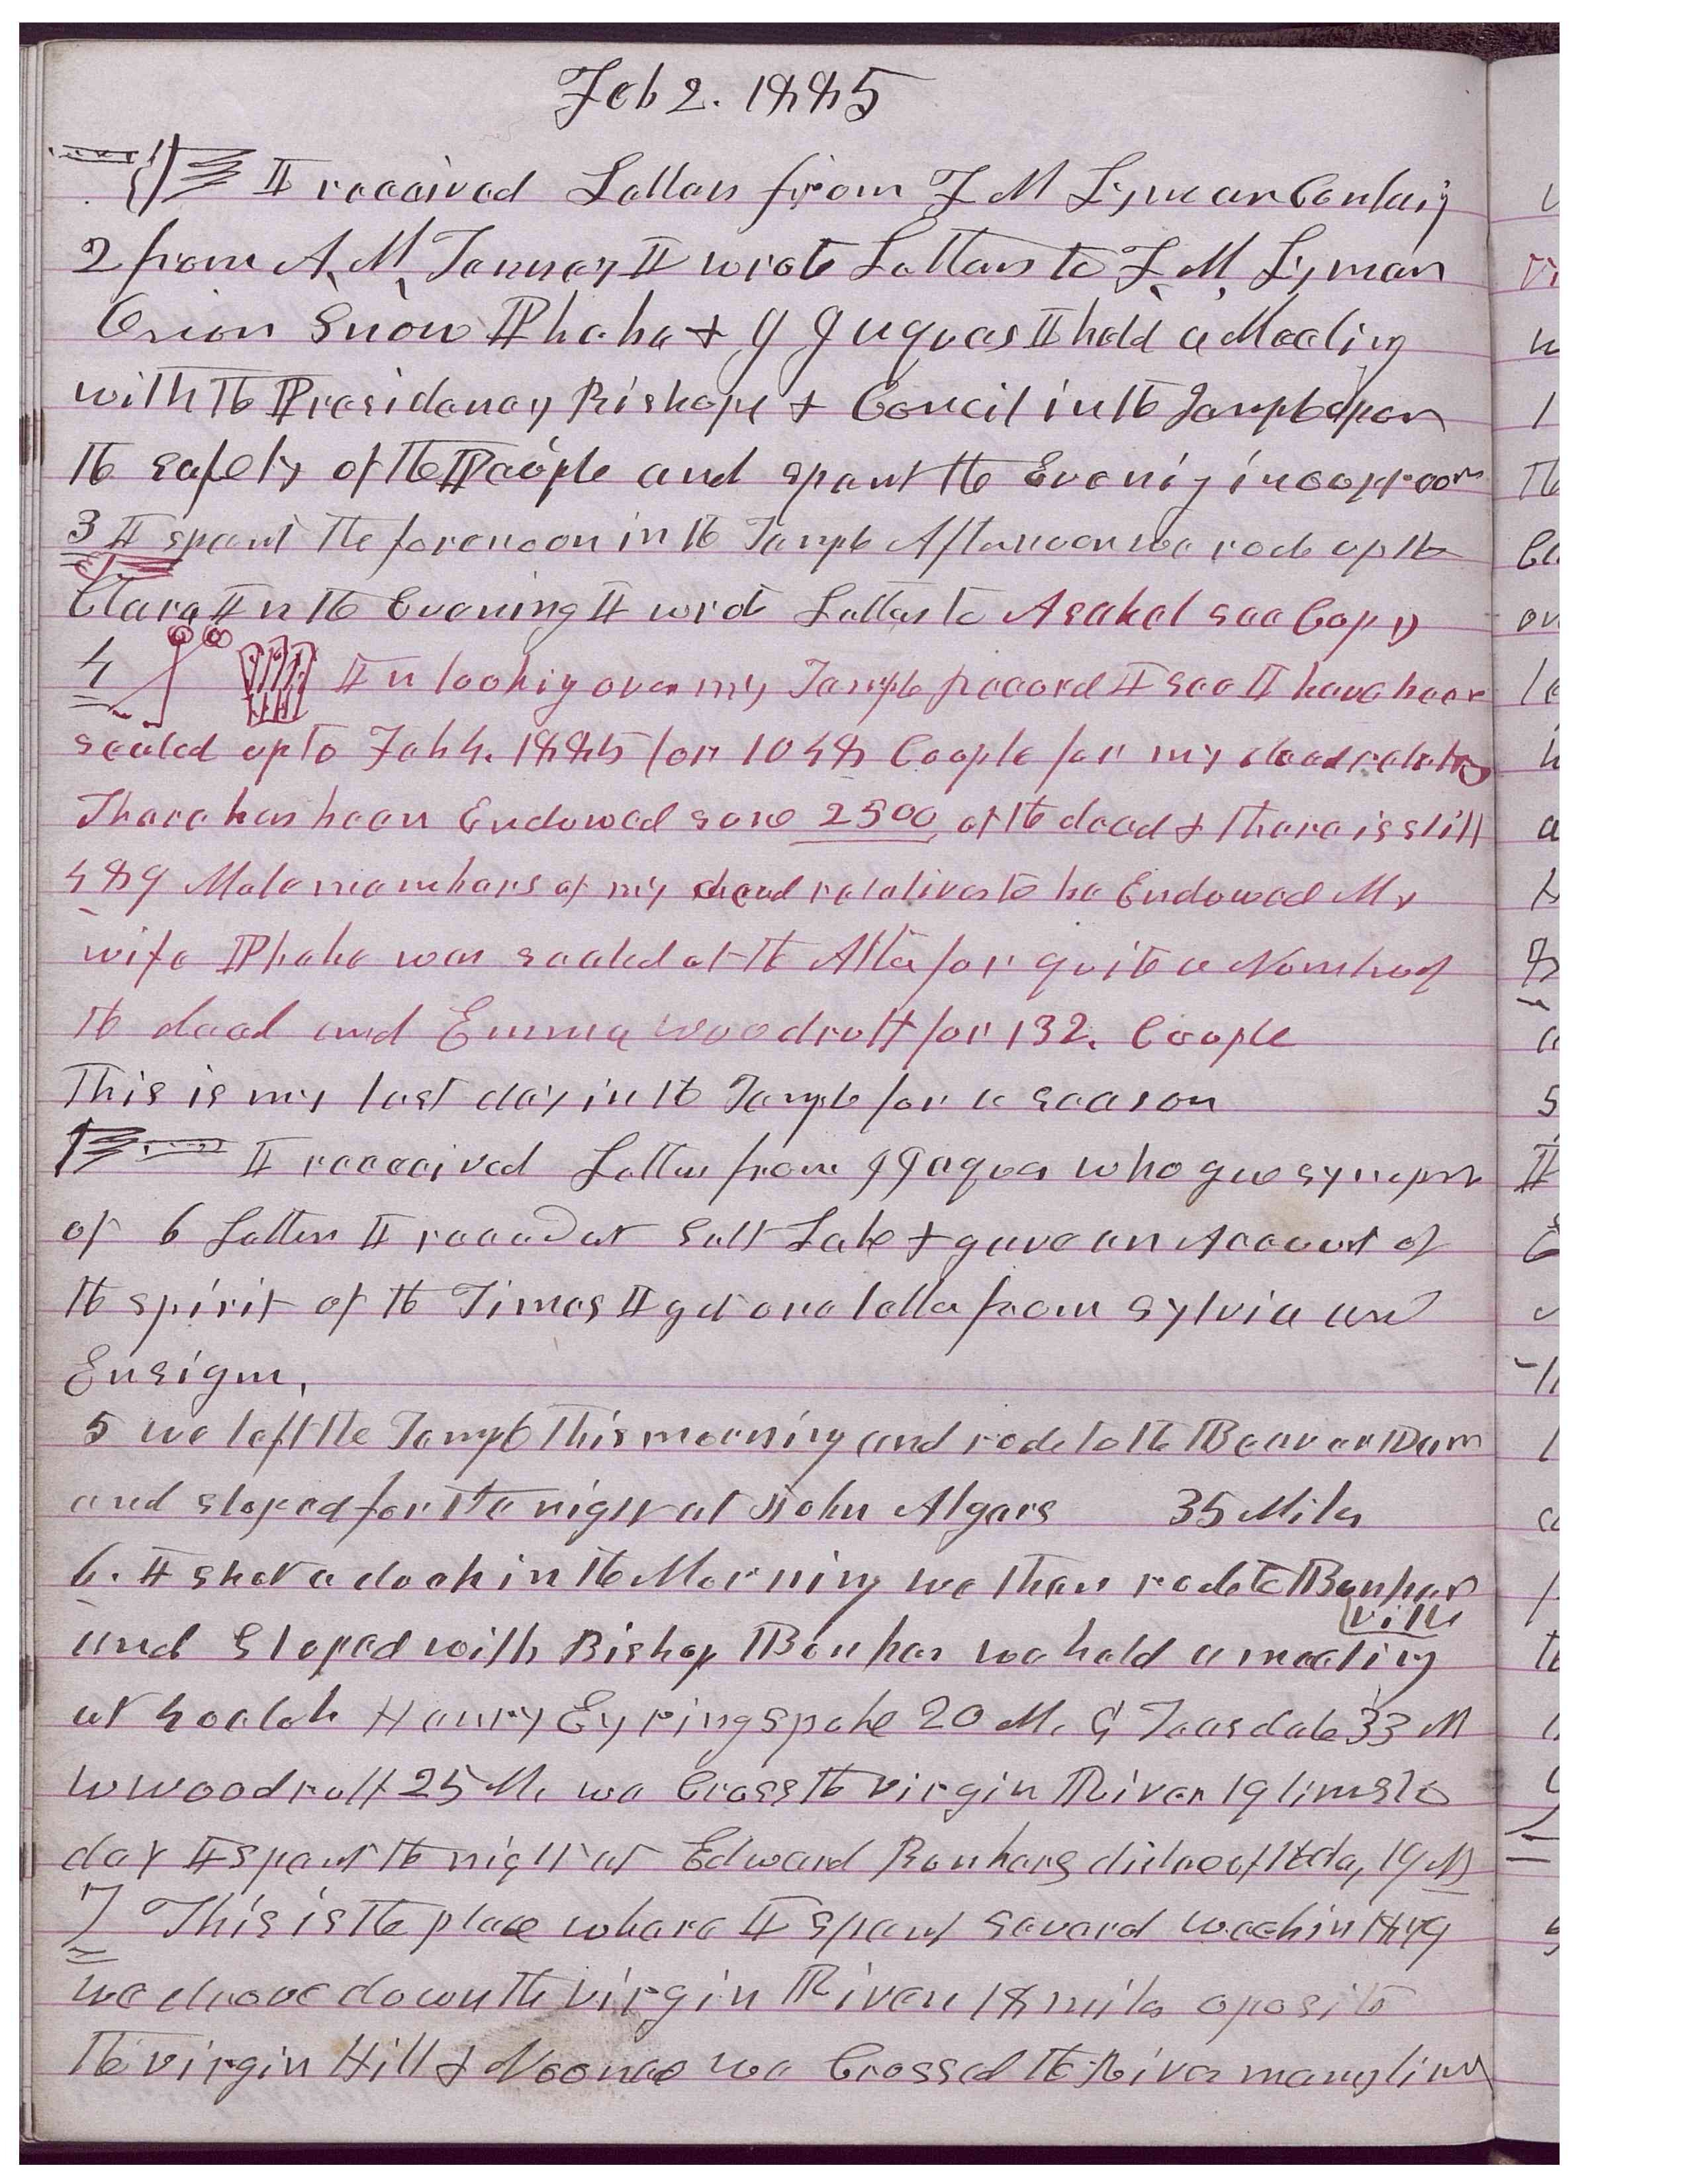 Feb 2. 1885
I received Letters from F M Lyman Containig
2 from A. M. Tenney I wrote Letters to F. M. Lyman
Erion Snow Phebe & J Jaques I held a Meeting
with the Presidency Bishops & Councit in the Temple upon
the safety of the People and spent the Evenig in our room
3 I spent the forenoon in the Temple Afternoon we rode up to
Clara In the Evening I wrote Letter to Asahel see Copy
4 In lookig over my Temple record I see I have been
sealed up to Feb 4. 1885 for 1048 Couple for my dead relatives
There has been Endowed some 2500 of the dead & there is still
489 Male members of my dead relatives to be Endowed My
wife Phebe was sealed at the Alter for quite a Number of
the dead and Emma Woodruff for 132. Couple
This is my last day in the Temple for a season
I receeived Letter from J Jaques who gave synopsis
of 6 Letters I receed at Salt Lake & gave an Account of
the spirit of the Times I got one letter from Sylvia and
Ensign,
5 we left the Temple this mornig and rode to the Beaver Dam
and stoped for the night at John Algers 35 Miles
6. I shot a duck in the Morning we then rode to Bunker
ville
and Stoped with Bishop Bunker we held a meeting
at 4 oclok Henry Eyring spoke 20 M. G Teasdale 33 M
W Woodruff 25 M. we Cross the virgin River 19 times to
day I spent the night at Edward Bunkers distace of the day 19 M
7 This is the place where I spent several week in 1879
we drove down the virgin River 18 miles oposite
the virgin Hill & Nooned we Crossed the River many times